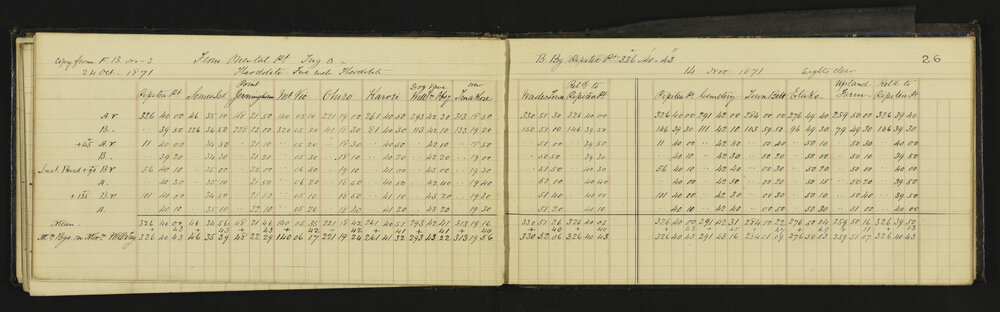 copy from F. B. no 3 From Oriental Pt Trig a
24 Oct. 1871 Theodolite Five inch Theodolite
Repeter Pt Somes Isd Point Jerningham Mt Vic Ohiro Karori
A r 326 40 00 46 35 10 48 21 50 140 05 10 221 19 00 261 40 50 293 42 30 313 18 50
B. .. 39 50 226 34 50 228 22 00 320 05 20 41 18 30 81 40 30 113 42 10 133 19 20
+45 A r 11 40 00 .. 34 50 .. 21 10 .. 05 20 .. 18 30 .. 40 50 .. 42 10 .. 18 50
B .. 39 20 .. 34 30 .. 21 20 .. 05 30 .. 18 10 .. 40 20 .. 42 20 .. 19 00
Inst. Revd +90 B r 56 40 10 .. 35 00 .. 22 00 .. 06 30 .. 19 10 .. 41 00 .. 43 00 .. 19 30
A .. 40 30 .. 35 10 .. 21 50 .. 06 20 .. 18 50 .. 40 50 .. 42 40 .. 19 40
+135 B r 101 40 00 .. 34 50 .. 21 50 .. 05 10 .. 18 50 .. 41 10 .. 43 20 .. 19 30
A. .. 40 10 .. 35 10 .. 22 10 .. 05 20 .. 18 40 .. 41 20 .. 43 20 .. 19 30
Mean 326 40 00 46 34 56 48 21 46 140 05 35 221 18 42 261 40 51 293 42 41 313 19 16
+ 43 + 43 + 43 + 42 + 42 + 41 + 41 + 40
326 40 43 46 35 39 48 22 29 140 06 17 221 19 24 261 41 32 293 43 22 313 19 56
26
B. By Repeter Pt 326° 40' 43"
14 Nov 1871
Repeter Pt
Repeter Pt Cemetery Upland Farm Refd to Repeter Pt
330 51 30 326 40 00 326 40 00 291 42 30 284 00 00 276 49 40 259 50 00 326 39 40
150 51 10 146 39 50 146 39 30 111 42 10 103 59 50 96 49 30 79 49 30 146 39 30
.. 51 00 .. 39 50 11 40 00 .. 42 50 .. 00 40 .. 50 10 .. 50 30 .. 40 00
.. 50 50 .. 39 30 .. 40 10 .. 42 30 .. 00 20 .. 50 00 .. 50 10 .. 39 50
.. 51 50 .. 40 30 56 40 10 .. 42 40 .. 00 30 .. 50 20 .. 50 30 .. 40 00
.. 52 10 .. 40 40 .. 40 00 .. 42 40 .. 00 30 .. 50 15 .. 50 20 .. 39 50
.. 51 40 .. 40 00 101 40 00 .. 42 30 .. 00 20 .. 50 10 .. 50 40 .. 39 50
.. 51 20 .. 40 10 .. 40 10 .. 42 40 .. 00 50 .. 50 30 .. 51 00 .. 40 00
330 51 26 326 40 03 326 40 00 291 42 31 284 00 22 276 50 04 259 50 16 326 39 50
+ 40 + 40
330 52 06 326 40 43 326 40 43 291 43 16 284 01 09 276 50 53 259 51 07 326 40 43